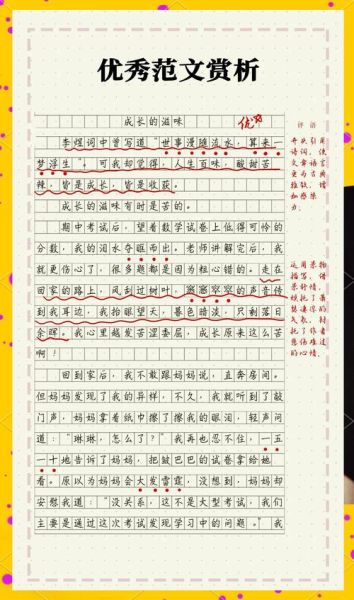 优秀范文赏析
成长的滋味
优
评语
李煜词中曾写道“世事漫随流水,算来一
梦浮生”。可我却觉得,人生百味,酸甜苦
辣,皆是成长,皆是收获。
成长的滋味有时是苦的。
期中考试后,望着数学试卷上低得可怜的
分数,我的泪水夺眶而出。老师讲解完后,我
就更伤心了,很多题都是因为粗心错的。走在
回家的路上,风刮过树叶,窸窸窣窣的声音传
到我耳边,我抬眼望天,暮色暗淡,只剩落日
余晖。我心里越发苦涩委屈,成长原来这么苦
啊!
回到家后,我不敢跟妈妈说,直奔房间。
但妈妈发现了我的异样,不久,我就听到了敲
门声,妈妈拿着纸巾擦了擦我的眼泪,轻声问
道:“琳琳,怎么了?”我再也忍不住,一五
一十地告诉了妈妈,把皱巴巴的试卷拿给她
看。原以为妈妈会大发雷霆,没想到,妈妈却
安慰我道:“没关系,这不是大型考试,我们
主要是通过这次考试发现学习中的问题。”我
开头引用
诗词,使
文章语言
更为古典
雅致,增
加感染
力。
运用景物
描写,借
景抒情,
烘托了萧
瑟凄凉的
气氛,衬
托了作者
悲伤难过
的心情。